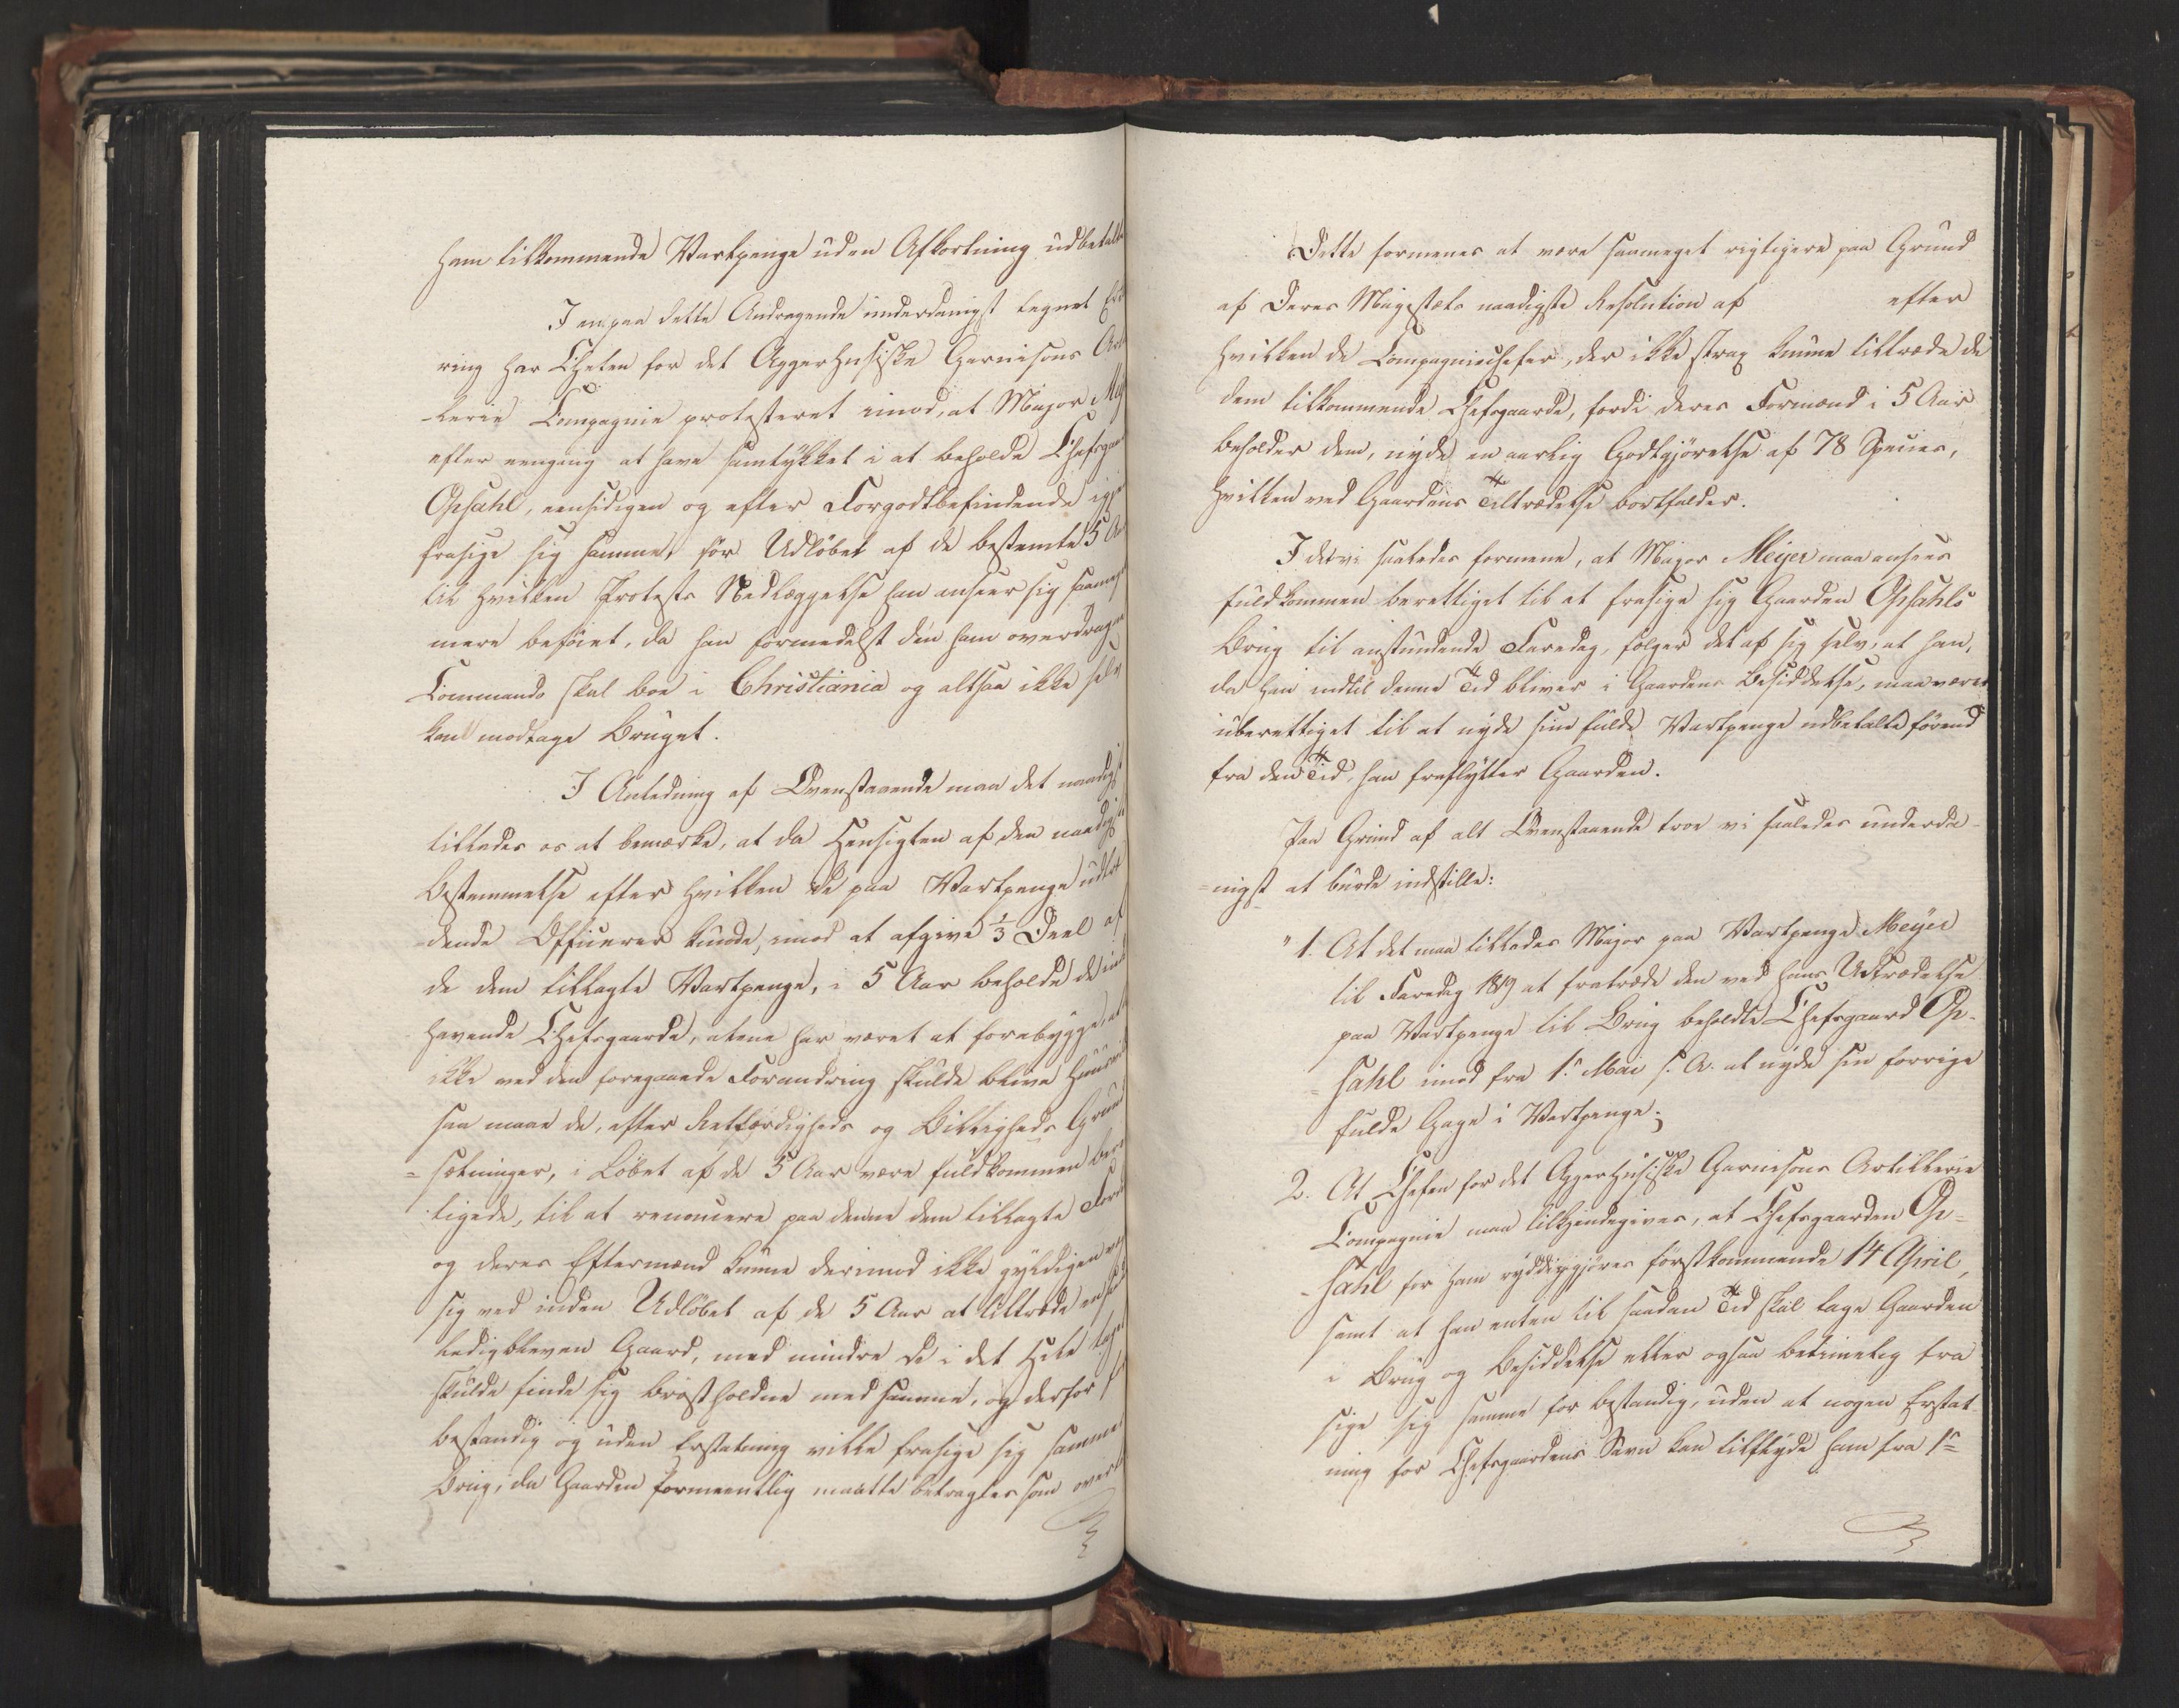 ham tilkommende Vartpenge uden Afkortning udbetalte
I en paa dette Andragende underdanigst tegnet Erklæ
ring har Chefen for det Aggerhusiske Garnisons Artil
-lerie Compagnie protesteret imod, at Major Mey
efter eengang at have samtykket i at beholde Chefsgaar
Opsahl, eensidigen og efter Forgodtbefindende igjen
frasige sig samme, før Udløbet af de bestemte 5 Aar
til hvilken Protests Nedlæggelse han anseer sig saameget
mere beføiet, da han formedelst den ham overdragne
Commando skal boe i Christiania og altsaa ikke selv
kan modtage Bruget.
I Anledning af Ovenstaaende maa det naadigst
tillades os at bemærke, at da Hensigten af den naadigste
Bestemmelse efter hvilken de paa Vartpenge udtræ
-dende Officerer kunde, imod at afgive 1/3 Deel af
de dem tillagte Vartpenge, i 5 Aar beholde de inde
havende Chefsgaarde, alene har været at forebygge, at
ikke ved den foregaaende Forandring skulde blive Huusvil
saa maae de, efter Retfærdigheds og Billigheds Grund
= sætninger, i Løbet af de 5 Aar være fuldkommen beret
tigede, til at renoncere paa denne dem tillagte Fordel
og deres Eftermænd kunne derimod ikke gyldigen væ
sig ved inden Udløbet af de 5 Aar at tiltræde en saa
ledigbleven Gaard, med mindre de i det Hele taget
skulde finde sig brøstholdne med samme, og derfor for
bestandig og uden Erstatning ville frasige sig samme
Brug, da Gaarden formeentlig maatte betragtes som over
Dette formenes at være saameget rigtigere paa Grund
af Deres Majestæts naadigste Resolution af efter
hvilken de Compagniechefer, der ikke strax kunne tiltræde de
dem tilkommende Chefsgaarde, fordi deres Formænd i 5 Aar
beholder dem, nyde en aarlig Godtgjørelse af 78 Species,
hvilken ved Gaardens Tiltrædelse bortfalder.
I det vi saaledes formene, at Major Meijer maa ansees
fuldkommen berettiget til at frasige sig Gaarden Opsahls
Brug til anstundende Faredag, følger det af sig selv, at han,
da han indtil denne Tid bliver i Gaardens Besiddelse, maa være
uberettiget til at nyde sine fulde Vartpenge udbetalte førend
fra den Tid, han fraflytter Gaarden.
Paa Grund af alt Ovenstaaende troe vi saaledes underda-
=nigst at burde indstille:
"1. At det maa tillades Major paa Vartpenge Meyer
til Faredag 1819 at fratræde den ved hans Udtrædelse
paa Vartpenge til Brug beholdte Chefsgaard Op-
= sahl imod fra 1s Mai s. A. at nyde sin forrige
fulde Gage i Vartpenge;
2. At Chefen for det Aggerhusiske Garnisons Artillerie
Compagnie maa tilkjendegives, at Chefsgaarden Op=
- sahl for ham ryddiggjøres førstkommende 14 April,
samt at han enten til saadan Tid skal tage Gaarden
i Brug og Besiddelse eller ogsaa betimelig fra
sige sig samme for bestandig, uden at nogen Erstat
ning for Chefsgaardens Savn kan tilflyde ham fra 1s